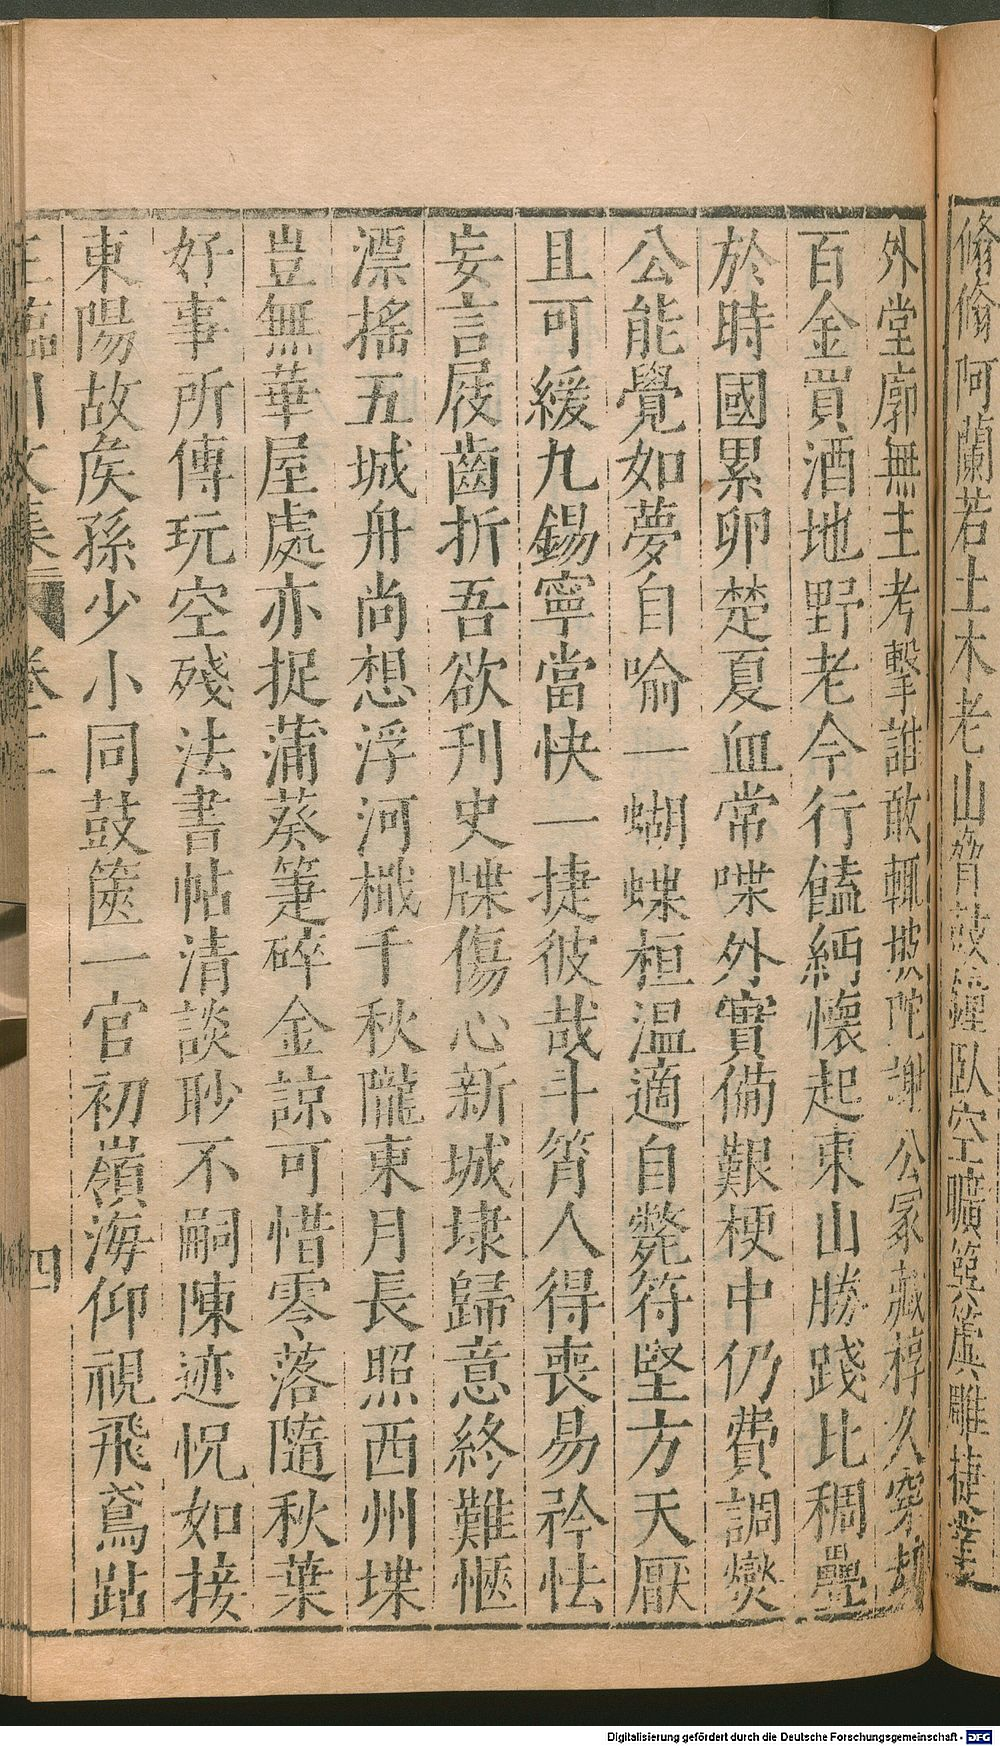 翛翛阿蘭若土木老山脊鼓鐘臥空曠簨簴雕捷業
外堂廓無主考擊誰敢輒坡陀謝公冢藏椁久穿劫
百金買酒地野老今行饁緬懷起東山勝踐比稠疊
於時國累卵楚夏血常喋外實備艱梗中仍費調燮
公能覺如夢自喻一蝴蝶桓溫適自斃符堅方天厭
且可緩九錫寧當快一捷彼哉斗筲人得喪易矜怯
妄言屐齒折吾欲刊史牒傷心新城埭歸意終難愜
漂搖五城舟尚想浮河檝千秋隴東月長照西州堞
豈無華屋處亦捉蒲葵箑碎金諒可惜零落隨秋葉
好事所傳玩空殘法書帖清談眇不嗣陳迹怳如接
東陽故矦孫少小同鼓篋一官初嶺海仰視飛鳶跕
王臨川文集 卷二 四
Digitalisierung gefördert durch die Deutsche Forschungsgemeinschaft - DFG